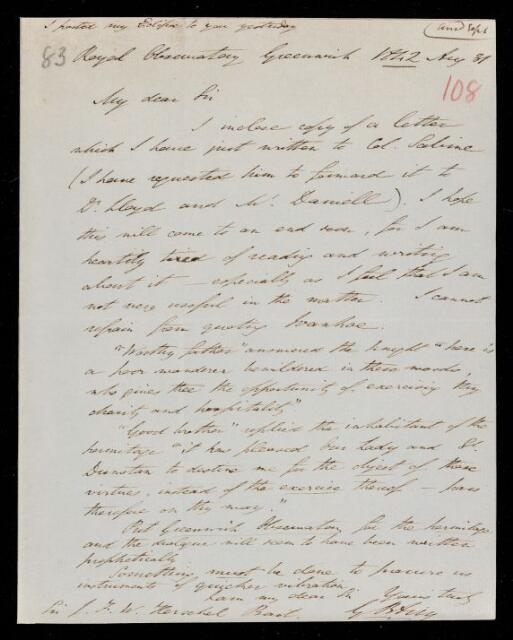 I posted my Eclipse to you yesterday
(and Sept
83 Royal Observatory Greenwich 1842 Aug 31
108
My dear Sir
I inclose copy of a letter
which I have just written to Col. Sabine
(I have requested him to forward it to
Dr. Lloyd and Mr. Daniell). I hope
this will come to an end soon, for I am
heartily tired of reading and writing
about it — especially as I feel that I am
not very useful in the matter. I cannot
refrain from quoting Ivanhoe.
"Worthy father" answered the knight "here is
a poor wanderer bewildered in these woods,
who gives thee the opportunity of exercising thy
charity and hospitality"
"Good brother" replied the inhabitant of the
hermitage "it has pleased Our Lady and St.
Dunstan to destine me for the object of those
virtues, instead of the exercise thereof — pass
therefore on thy way."
Put Greenwich Observatory for the hermitage
and the dialogue will seem to have been written
prophetically
Something must be done to procure us
instruments of quicker vibration.
I am my dear Sir Yours truly
Sir J. F. W. Herschel Bart. G B Airy